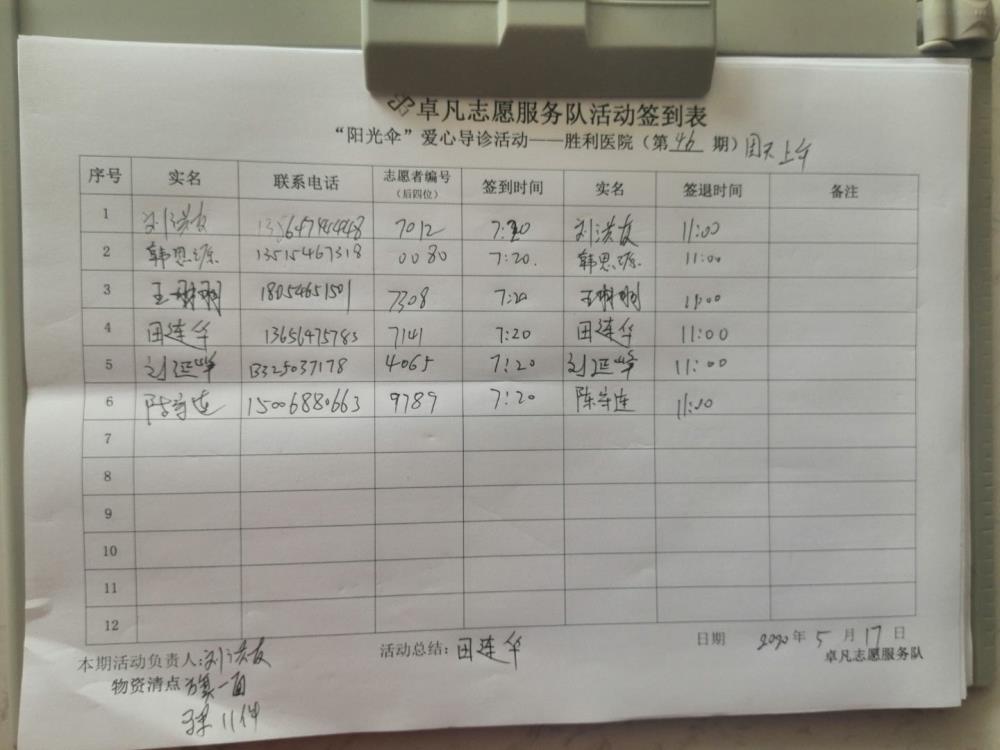 卓凡志愿服务队活动签到表
“阳光伞”爱心导诊活动——胜利医院（第46期）周天上午
序号 实名 联系电话 志愿者编号（后四位） 签到时间 实名 签退时间 备注
1 刘洪友 7012 7:20 刘洪友 11:00
2 韩思源 13515467318 0080 7:20. 韩思源 11:00
3 王琳琳 18054651501 7308 7:20 王琳琳 11:00
4 田连华 13656475783 7141 7:20 田连华 11:00
5 刘延华 13325037178 4065 7:20 刘延华 11:00
6 陈守连 15006880663 9789 7:20 陈守连 11:10
7
8
9
10
11
12
本期活动负责人:刘洪友 活动总结：田连华 日期 2020年5月17日
物资清点 旗一面 卓凡志愿服务队
11件